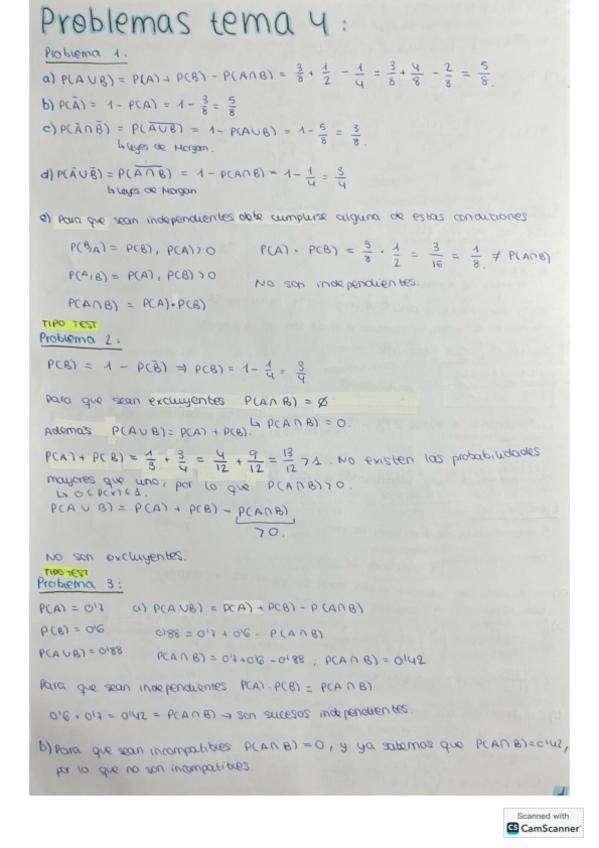 Problemas tema 4:
Problema 1.
a) P(A∪B) = P(A) + P(B) - P(A∩B) = 3/8 + 1/2 - 1/4 = 3/8 + 4/8 - 2/8 = 5/8.
b) P(Ā) = 1 - P(A) = 1 - 3/8 = 5/8
c) P(Ā∩B̄) = P(A̅∪̅B̅) = 1 - P(A∪B) = 1 - 5/8 = 3/8.
↳ Leyes de Morgan.
d) P(Ā∪B̄) = P(A̅∩̅B̅) = 1 - P(A∩B) = 1 - 1/4 = 3/4
↳ Leyes de Morgan
e) Para que sean independientes debe cumplirse alguna de estas condiciones
P(B/A) = P(B), P(A)>0 P(A) · P(B) = 3/8 · 1/2 = 3/16 = 1/8. ≠ P(A∩B)
P(A/B) = P(A), P(B)>0 No son independientes.
P(A∩B) = P(A)·P(B)
TIPO TEST
Problema 2:
P(B) = 1 - P(B̄) ⇒ P(B) = 1 - 1/4 = 3/4
Para que sean excluyentes P(A∩B) = ∅
↳ P(A∩B) = 0.
Además P(A∪B) = P(A) + P(B).
P(A) + P(B) = 1/3 + 3/4 = 4/12 + 9/12 = 13/12 > 1. No existen las probabilidades
mayores que uno, por lo que P(A∩B)>0.
↳ 0≤P(x)≤1.
P(A∪B) = P(A) + P(B) - P(A∩B)
>0.
No son excluyentes.
TIPO TEST
Problema 3:
P(A) = 0'7 a) P(A∪B) = P(A) + P(B) - P(A∩B)
P(B) = 0'6 0'88 = 0'7 + 0'6 - P(A∩B)
P(A∪B) = 0'88 P(A∩B) = 0'7+0'6-0'88 ; P(A∩B) = 0'42
Para que sean independientes P(A)·P(B) = P(A∩B)
0'6 · 0'7 = 0'42 = P(A∩B) → son sucesos independientes.
b) Para que sean incompatibles P(A∩B) = 0, y ya sabemos que P(A∩B) = 0'42,
por lo que no son incompatibles.
1
Scanned with
CS CamScanner